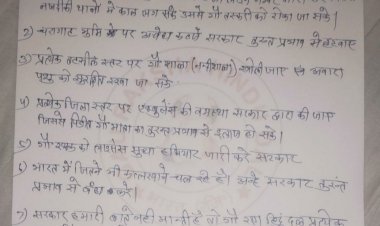 नजदीकी थानों में काल जग सके उससे गौ तस्करी को रोका जा सके।
2) चरागाह भूमि से पर अवैध कब्जे सरकार तुरन्त प्रभाव से हटवाए
3) प्रत्येक तहसील स्तर पर गौ शाला (नन्दीशाला) खोली जाए एवं आवारा
पशु को सुरक्षित रखा जा सके
4) प्रत्येक जिला स्तर पर एम्बुलेंस की व्यवस्था सरकार द्वारा की जाए
जिससे पीड़ित गौ माता का तुरन्त प्रभाव से इलाज हो सके।
5) गौ रक्षक को लाइसेंस सुधा हथियार जारी करे सरकार
6) भारत में जितने भी कत्लखाने चल रहे है। उन्हें सरकार तुरंत
प्रभाव से बंध करे।
7) सरकार हमारी बाते नहीं मानती है तो गौ रक्षा हिंदू दल प्रत्येक